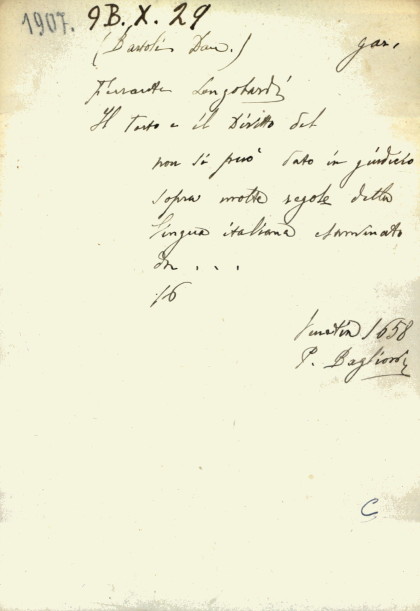 1907. 9B.X.29
(Bartoli Dan.) gan,
Ferrante Longobardi
Il Torto e il Diritto del
non si può dato in giudicio
sopra molte regole della
lingua italiana esaminato
da . . .
16
Venetia 1658
P. Baglioni
C